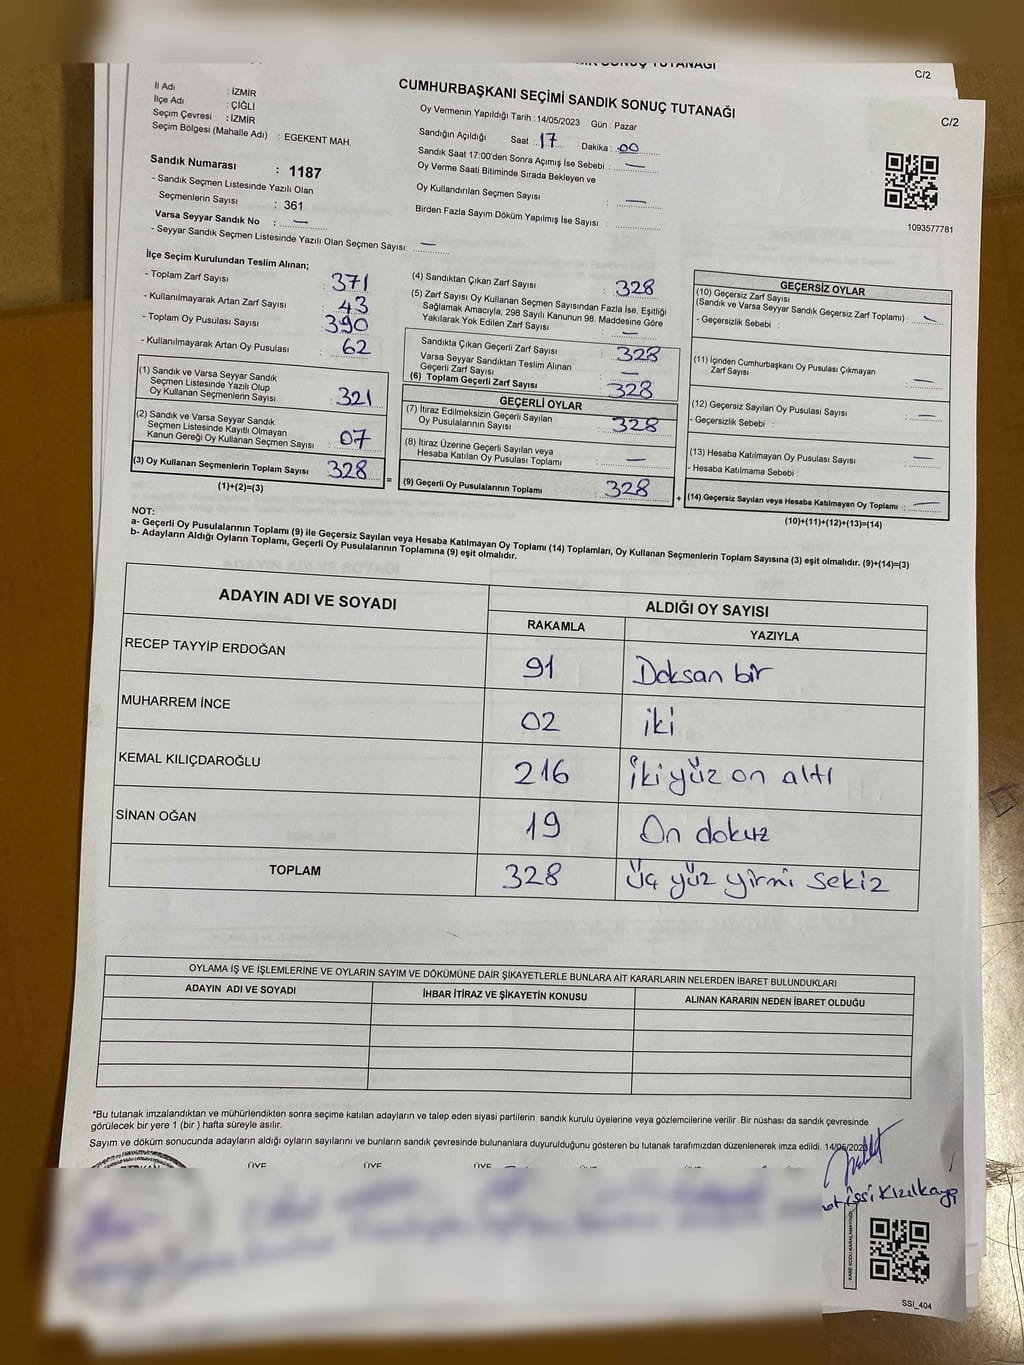 C/2
CUMHURBAŞKANI SEÇİMİ SANDIK SONUÇ TUTANAĞI
C/2
İl Adı : İZMİR
İlçe Adı : ÇİĞLİ
Seçim Çevresi : İZMİR
Seçim Bölgesi (Mahalle Adı) : EGEKENT MAH.
Oy Vermenin Yapıldığı Tarih : 14/05/2023 Gün : Pazar
Sandığın Açıldığı Saat : 17 Dakika : 00
Sandık Saat 17:00'den Sonra Açımış İse Sebebi : —
Oy Verme Saati Bitiminde Sırada Bekleyen ve
Oy Kullandırılan Seçmen Sayısı : —
Birden Fazla Sayım Döküm Yapılmış İse Sayısı :
1093577781
Sandık Numarası : 1187
- Sandık Seçmen Listesinde Yazılı Olan
Seçmenlerin Sayısı : 361
Varsa Seyyar Sandık No : —
- Seyyar Sandık Seçmen Listesinde Yazılı Olan Seçmen Sayısı: —
İlçe Seçim Kurulundan Teslim Alınan;
- Toplam Zarf Sayısı : 371
- Kullanılmayarak Artan Zarf Sayısı : 43
- Toplam Oy Pusulası Sayısı : 390
- Kullanılmayarak Artan Oy Pusulası : 62
(1) Sandık ve Varsa Seyyar Sandık
Seçmen Listesinde Yazılı Olup
Oy Kullanan Seçmenlerin Sayısı : 321
(2) Sandık ve Varsa Seyyar Sandık
Seçmen Listesinde Kayıtlı Olmayan
Kanun Gereği Oy Kullanan Seçmen Sayısı : 07
(3) Oy Kullanan Seçmenlerin Toplam Sayısı : 328
(1)+(2)=(3)
=
(4) Sandıktan Çıkan Zarf Sayısı : 328
(5) Zarf Sayısı Oy Kullanan Seçmen Sayısından Fazla İse, Eşitliği
Sağlamak Amacıyla, 298 Sayılı Kanunun 98. Maddesine Göre
Yakılarak Yok Edilen Zarf Sayısı : —
Sandıkta Çıkan Geçerli Zarf Sayısı : 328
Varsa Seyyar Sandıktan Teslim Alınan
Geçerli Zarf Sayısı : —
(6) Toplam Geçerli Zarf Sayısı : 328
GEÇERLİ OYLAR
(7) İtiraz Edilmeksizin Geçerli Sayılan
Oy Pusulalarının Sayısı : 328
(8) İtiraz Üzerine Geçerli Sayılan veya
Hesaba Katılan Oy Pusulası Toplamı : —
(9) Geçerli Oy Pusulalarının Toplamı : 328
+
GEÇERSİZ OYLAR
(10) Geçersiz Zarf Sayısı
(Sandık ve Varsa Seyyar Sandık Geçersiz Zarf Toplamı) : —
- Geçersizlik Sebebi :
(11) İçinden Cumhurbaşkanı Oy Pusulası Çıkmayan
Zarf Sayısı : —
(12) Geçersiz Sayılan Oy Pusulası Sayısı : —
- Geçersizlik Sebebi :
(13) Hesaba Katılmayan Oy Pusulası Sayısı : —
- Hesaba Katılmama Sebebi :
(14) Geçersiz Sayılan veya Hesaba Katılmayan Oy Toplamı : —
(10)+(11)+(12)+(13)=(14)
NOT:
a- Geçerli Oy Pusulalarının Toplamı (9) ile Geçersiz Sayılan veya Hesaba Katılmayan Oy Toplamı (14) Toplamları, Oy Kullanan Seçmenlerin Toplam Sayısına (3) eşit olmalıdır. (9)+(14)=(3)
b- Adayların Aldığı Oyların Toplamı, Geçerli Oy Pusulalarının Toplamına (9) eşit olmalıdır.
ADAYIN ADI VE SOYADI ALDIĞI OY SAYISI
RAKAMLA YAZIYLA
RECEP TAYYİP ERDOĞAN 91 Doksan bir
MUHARREM İNCE 02 iki
KEMAL KILIÇDAROĞLU 216 iki yüz on altı
SİNAN OĞAN 19 On dokuz
TOPLAM 328 üç yüz yirmi sekiz
OYLAMA İŞ VE İŞLEMLERİNE VE OYLARIN SAYIM VE DÖKÜMÜNE DAİR ŞİKAYETLERLE BUNLARA AİT KARARLARIN NELERDEN İBARET BULUNDUKLARI
ADAYIN ADI VE SOYADI İHBAR İTİRAZ VE ŞİKAYETİN KONUSU ALINAN KARARIN NEDEN İBARET OLDUĞU
*Bu tutanak imzalandıktan ve mühürlendikten sonra seçime katılan adayların ve talep eden siyasi partilerin sandık kurulu üyelerine veya gözlemcilerine verilir .Bir nüshası da sandık çevresinde
görülecek bir yere 1 (bir ) hafta süreyle asılır.
Sayım ve döküm sonucunda adayların aldığı oyların sayılarını ve bunların sandık çevresinde bulunanlara duyurulduğunu gösteren bu tutanak tarafımızdan düzenlenerek imza edildi. 14/05/2023
ÜYE ÜYE ÜYE
Kızılkaya
KARE KODU KARALAMAYINIZ
SSI_404